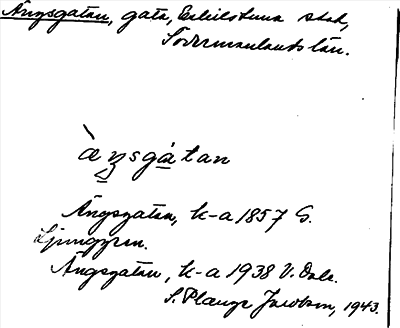 Ängsgatan, gata, Eskilstuna stad,
Södermanlands län.
àŋsgátan
Ängsgatan, k-a 1857 G.
Ljunggren.
Ängsgatan, k-a 1938 V. Dahl.
S. Plange Jacobson, 1943.